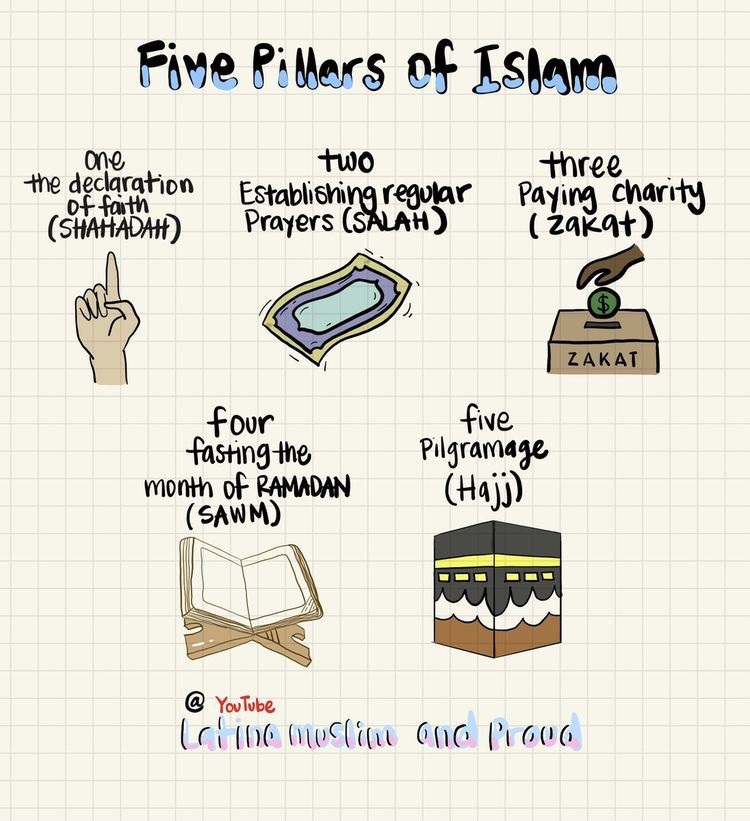 Five Pillars of Islam
one
the declaration
of faith
(SHAHADAH)
two
Establishing regular
Prayers (SALAH)
three
Paying charity
(zakat)
ZAKAT
four
fasting the
month of RAMADAN
(SAWM)
five
Pilgramage
(Hajj)
@ YouTube
Latina muslim and Proud